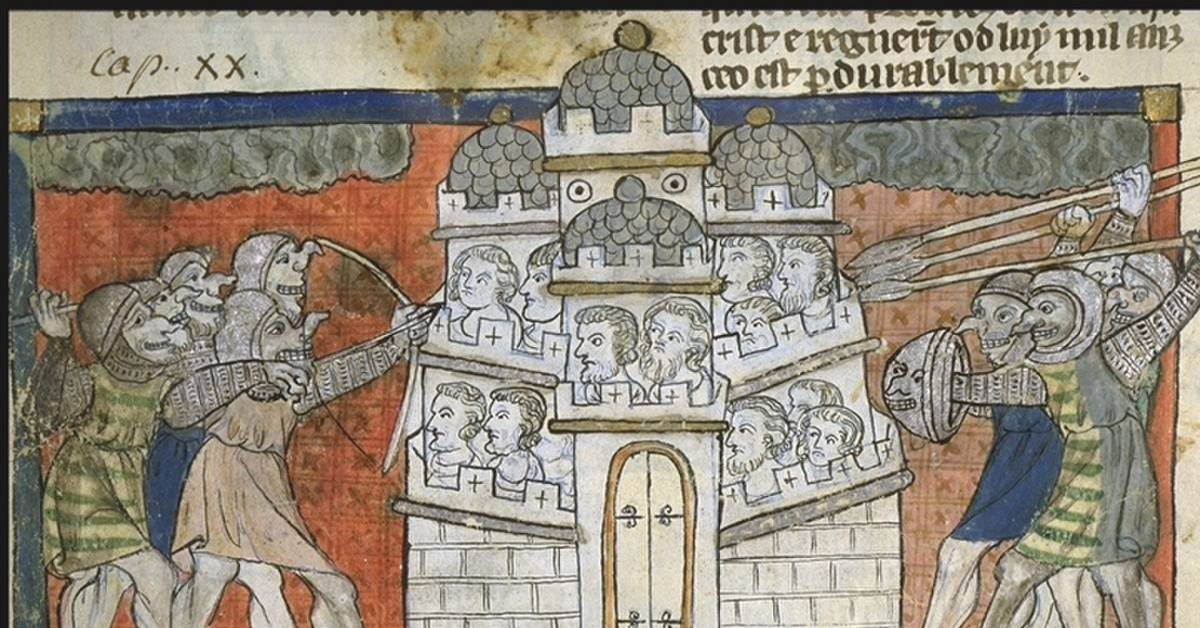 Cap. XX.
crist e regnerūt od luy mil anz
ceo est p̱durablement.